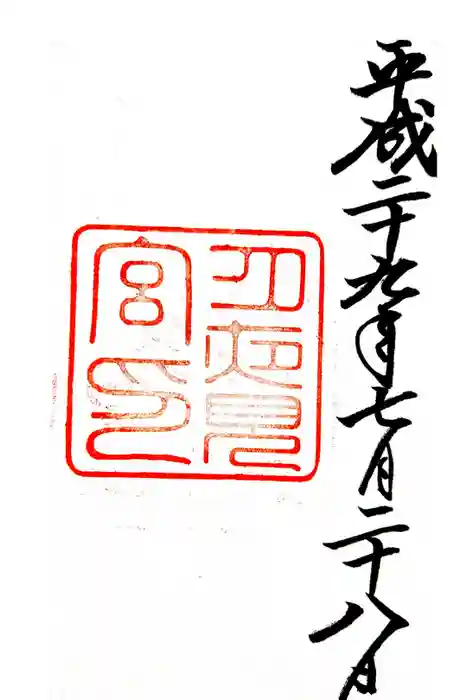 平成二十九年七月二十八日
月夜見
宮印